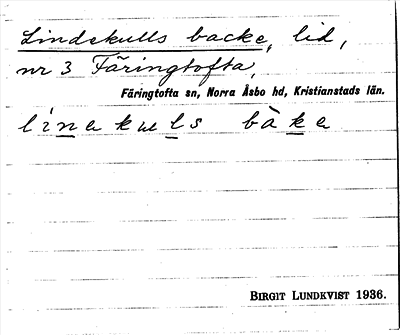 Lindekulls backe, lid,
nr 3 Färingtofta,
Färingtofta sn, Norra Åsbo hd, Kristianstads län.
bàke
BIRGIT LUNDKVIST 1936.